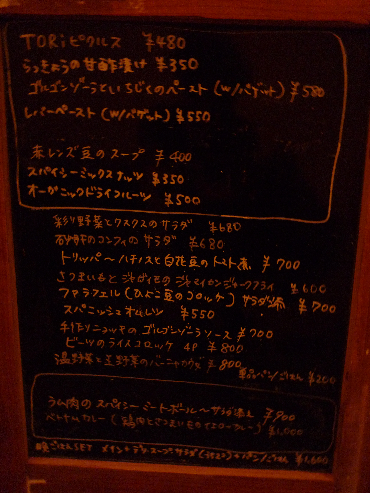 TORiピクルス ¥480
らっきょうの甘酢漬け ¥350
ゴルゴンゾーラといちじくのペースト(w/バゲット) ¥580
レバーペースト(w/バゲット) ¥550
赤レンズ豆のスープ ¥400
スパイシーミックスナッツ ¥350
オーガニックドライフルーツ ¥500
彩り野菜とクスクスのサラダ ¥680
砂肝のコンフィのサラダ ¥680
トリッパ〜ハチノスと白花豆のトマト煮 ¥700
さつまいもと ¥600
ファラフェル(ひよこ豆のコロッケ)サラダ添え ¥700
スパニッシュオムレツ ¥550
手作りニョッキのゴルゴンゾーラソース ¥700
ビーツのライスコロッケ 4P ¥800
温野菜と生野菜のバーニャカウダ ¥800
単品パン/ごはん ¥200
ラム肉のスパイシーミートボール〜サラダ添え ¥900
ベトナムカレー(鶏肉とさつまいものイエローカレー) ¥1,000
晩ごはんSET メイン+ スープ+サラダ パン/ごはん ¥1,600